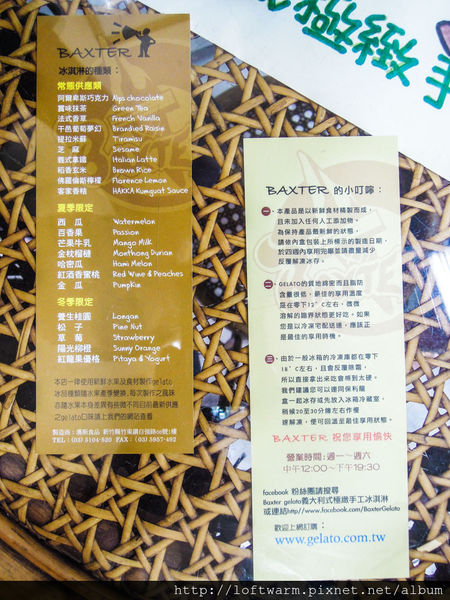 BAXTER
冰淇淋的種類：
常態供應類
阿爾卑斯巧克力 Alps chocolate
賞味抹茶 Green Tea
法式香草 French Vanilla
干邑葡萄夢幻 Brandied Raisin
提拉米蘇 Tiramisu
芝麻 Sesame
義式拿鐵 Italian Latte
稻香玄米 Brown Rice
佛羅倫斯檸檬 Florence Lemon
客家香桔 HAKKA Kumquat Sauce
夏季限定
西瓜 Watermelon
百香果 Passion
芒果牛乳 Mango Milk
金枕榴槤 Monthong Durian
哈密瓜 Hami Melon
紅酒香蜜桃 Red Wine & Peaches
金瓜 Pumpkin
冬季限定
養生桂圓 Longan
松子 Pine Nut
草莓 Strawberry
陽光柳橙 Sunny Orange
紅龍果優格 Pitaya & Yogurt
本店一律使用新鮮水果及食材製作gelato
冰品種類隨水果產季變換，每次製作之風味
亦隨水果本身差異有些微不同目前最新供應
之gelato口味請上我們的網站查看
TEL：(03) 5104-520 FAX：(03) 5957-492
BAXTER 的小叮嚀：
一、本產品是以新鮮食材精製而成，
且未加入任何人工添加物。
為保持產品最新鮮的狀態，
請依內盒包裝上所標示的製造日期，
於四週內享用完畢並請盡量減少
反覆解凍冰存。
二、GELATO的質地綿密而且脂肪
含量很低，最佳的享用溫度
是在零下12°C左右，微微
溶解的臨界狀態更好吃。如果
您是以冷凍宅配送達，應該正
是最佳的享用時機。
三、由於一般冰箱的冷凍庫都在零下
18°C左右，且會反覆除霜，
所以直接拿出來吃會稍到太硬。
我們建議您可以連同保利龍
盒一起冰存或先放入冰箱冷藏室，
稍候20至30分鐘左右作慢
速解凍，便可回溫至最佳享用狀態。
BAXTER 祝您享用愉快
營業時間：週一～週六
中午12:00～下午19:30
facebook 粉絲團請搜尋
Baxter gelato義大利式極緻手工冰淇淋
或連結http//www.facebook.com/BaxterGelato
歡迎上網訂購：
www.gelato.com.tw
http://loftwarm.pixnet.net/album